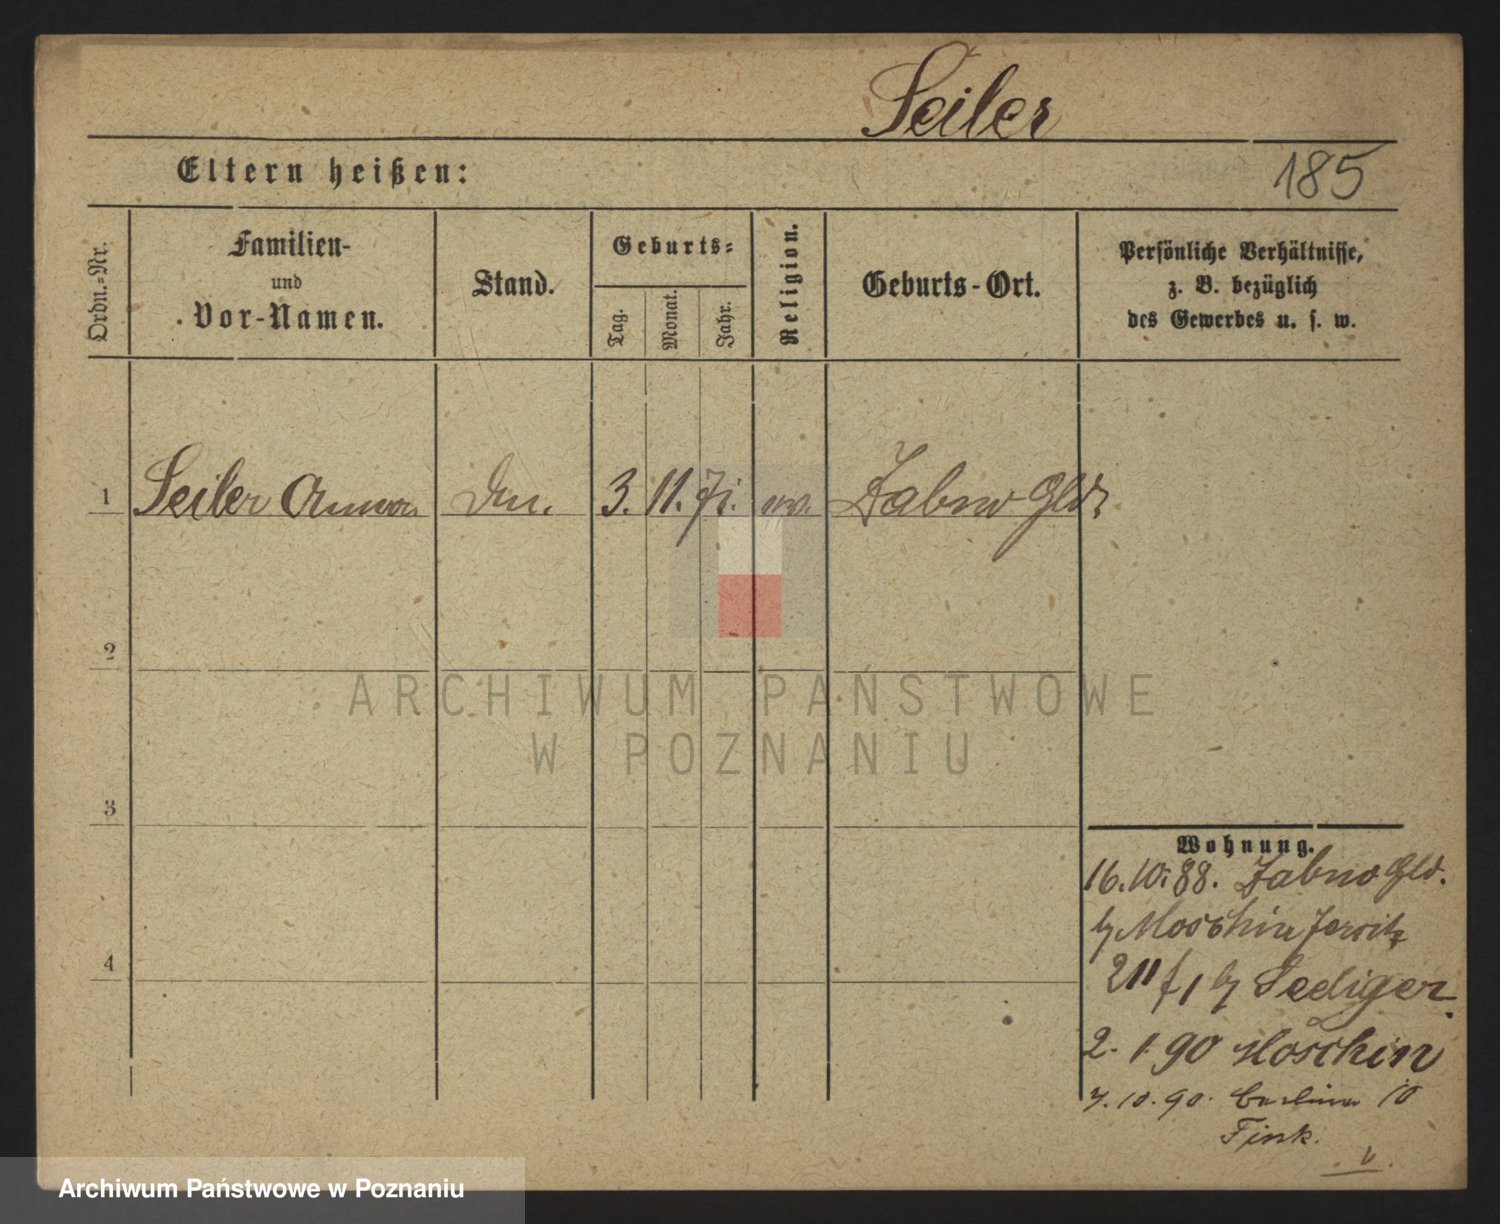 Seiler
185
Eltern heißen:
Ordn.-Nr.
Familien-
und
Vor-Namen.
Stand.
Geburts-
Tag.
Monat.
Jahr.
Religion.
Geburts-Ort.
Persönliche Verhältnisse,
z. B. bezüglich
des Gewerbes u. s. w.
1 Seiler Anna 3. 11. 71. Zabno
2
3
4
ARCHIWUM PAŃSTWOWE
W POZNANIU
Wohnung.
16.10.88. Zabno
Moschin Jersitz
Sediger
2. 1 90 Moschin
7. 10. 90. Berliner 10
Fink.
Archiwum Państwowe w Poznaniu